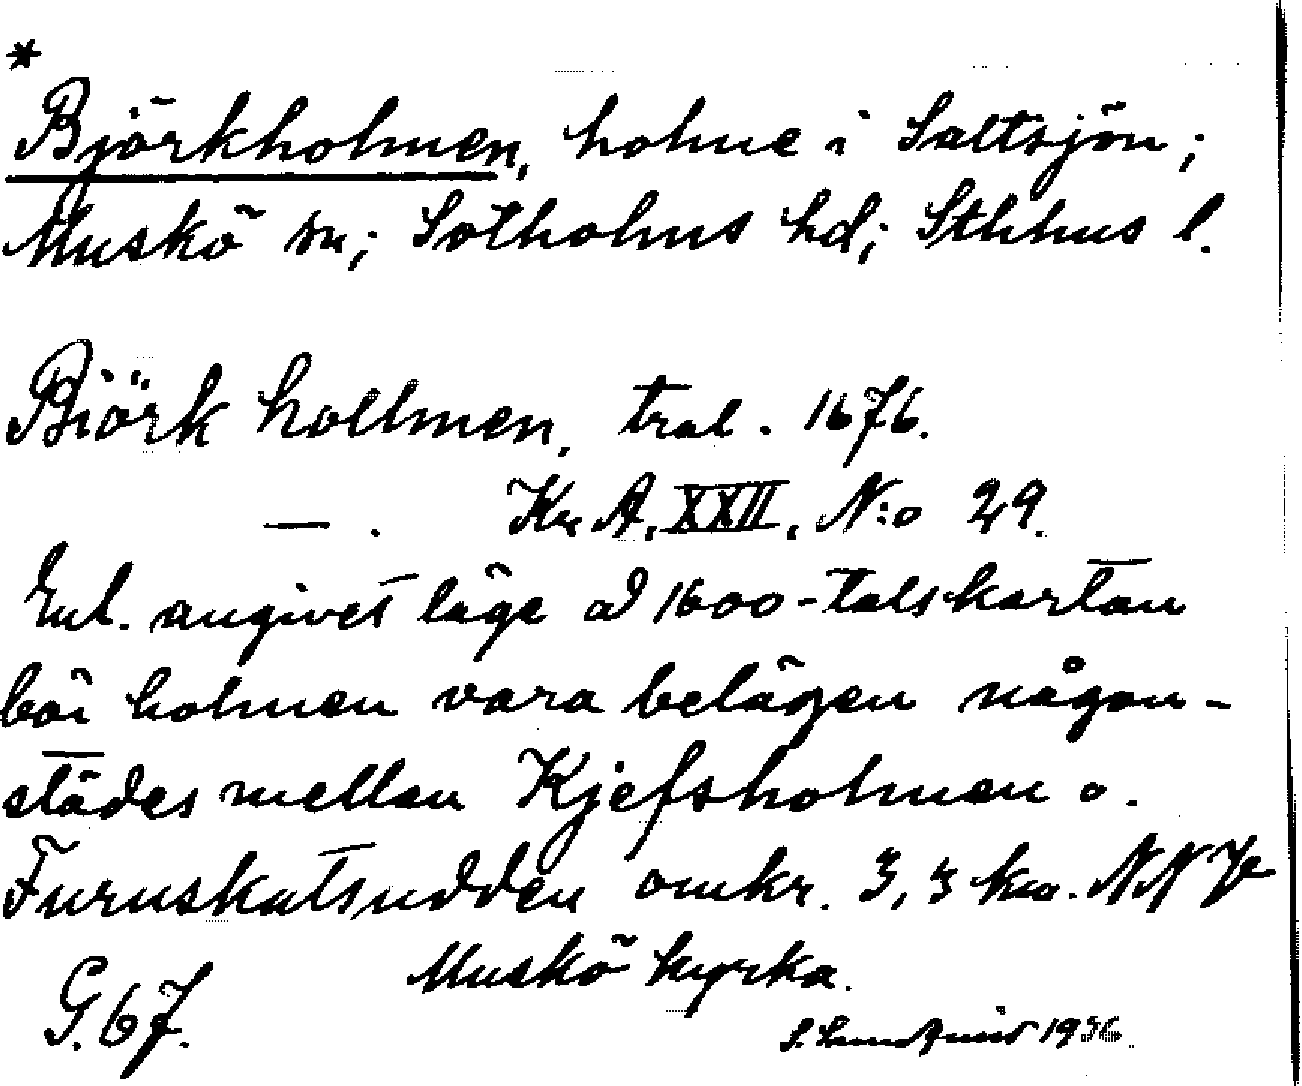 *
Björkholmen, holme i Saltsjön;
Muskö sn; Sotholms hd; Sthlms l.
Biörk hollmen, tral. 1676.
— . Kr A. XXII, N:o 29.
Enl. angivet läge å 1600-talskartan
bör holmen vara belägen någon-
städes mellan Kjefsholmen o.
Furuskatsudden omkr. 3,3 km. NN
Muskö kyrka.
G. 67.
S. 1936.